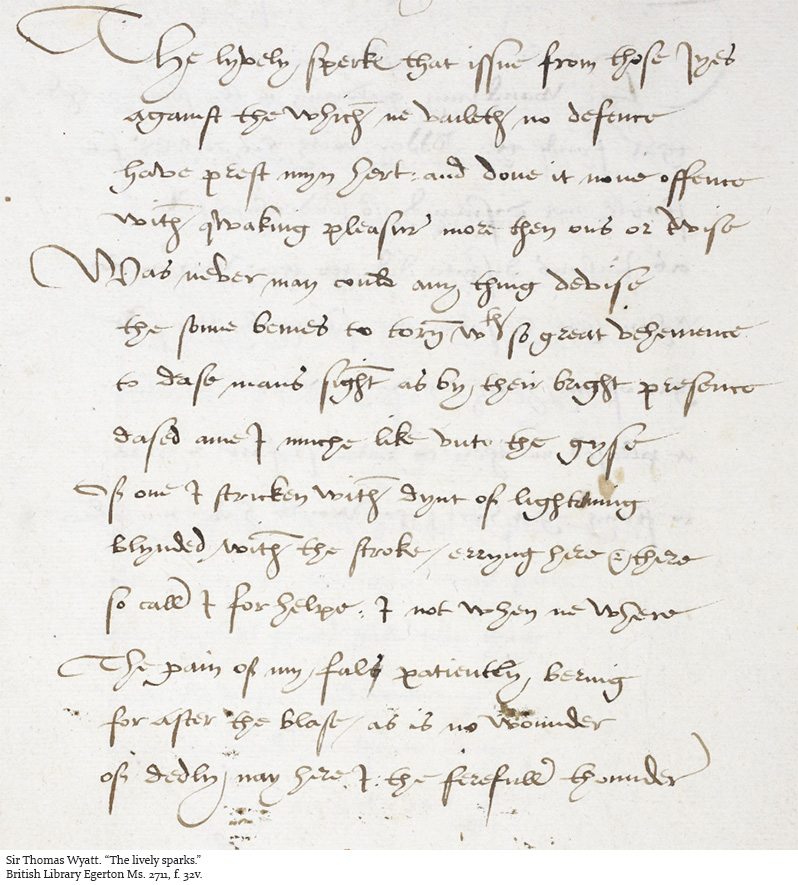 The lyvely sperk that issue from those Iyes
against the which ne vaileth no defence
have prest myn hert and done it none offence
with qwaking pleasur more then ons or twise
Was never man could any thing devise
the sonne bemes to torn wth so great vehemence
to dase mans sight as by their bright presence
dased ame I muche like vnto the gyse
Of one I stricken with dynt of lightening
blynded with the stroke / erryng here & there
so call I for helpe / I not when ne where
The pain of my fals patiently bering
for after the blase / as is no wounder
of dedly nay here I the ferefull thounder
Sir Thomas Wyatt. “The lively sparks.”
British Library Egerton Ms. 2711, f. 32v.